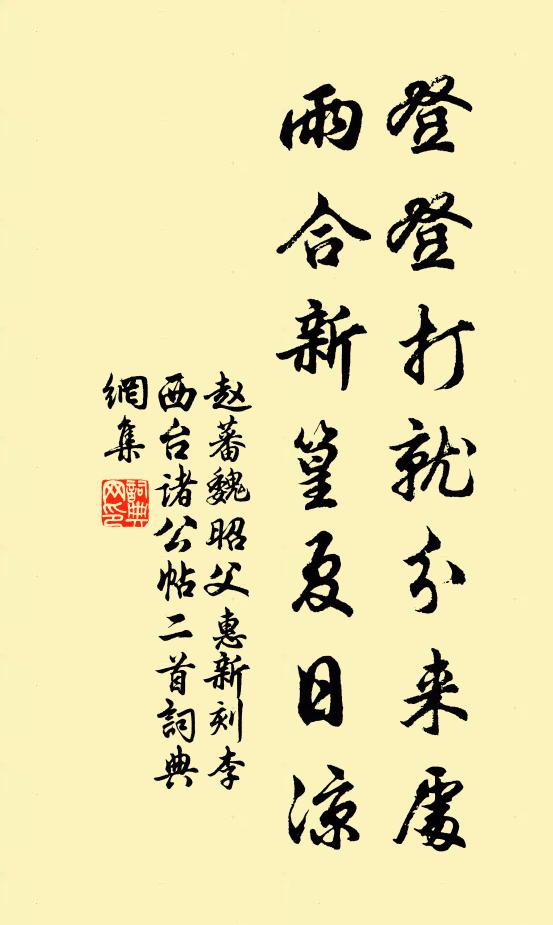 登登打就分来處
雨合新篁夏日涼
赵蕃魏昭父惠新刻李
西台诸公帖二首詞典
網集
詞典
网印